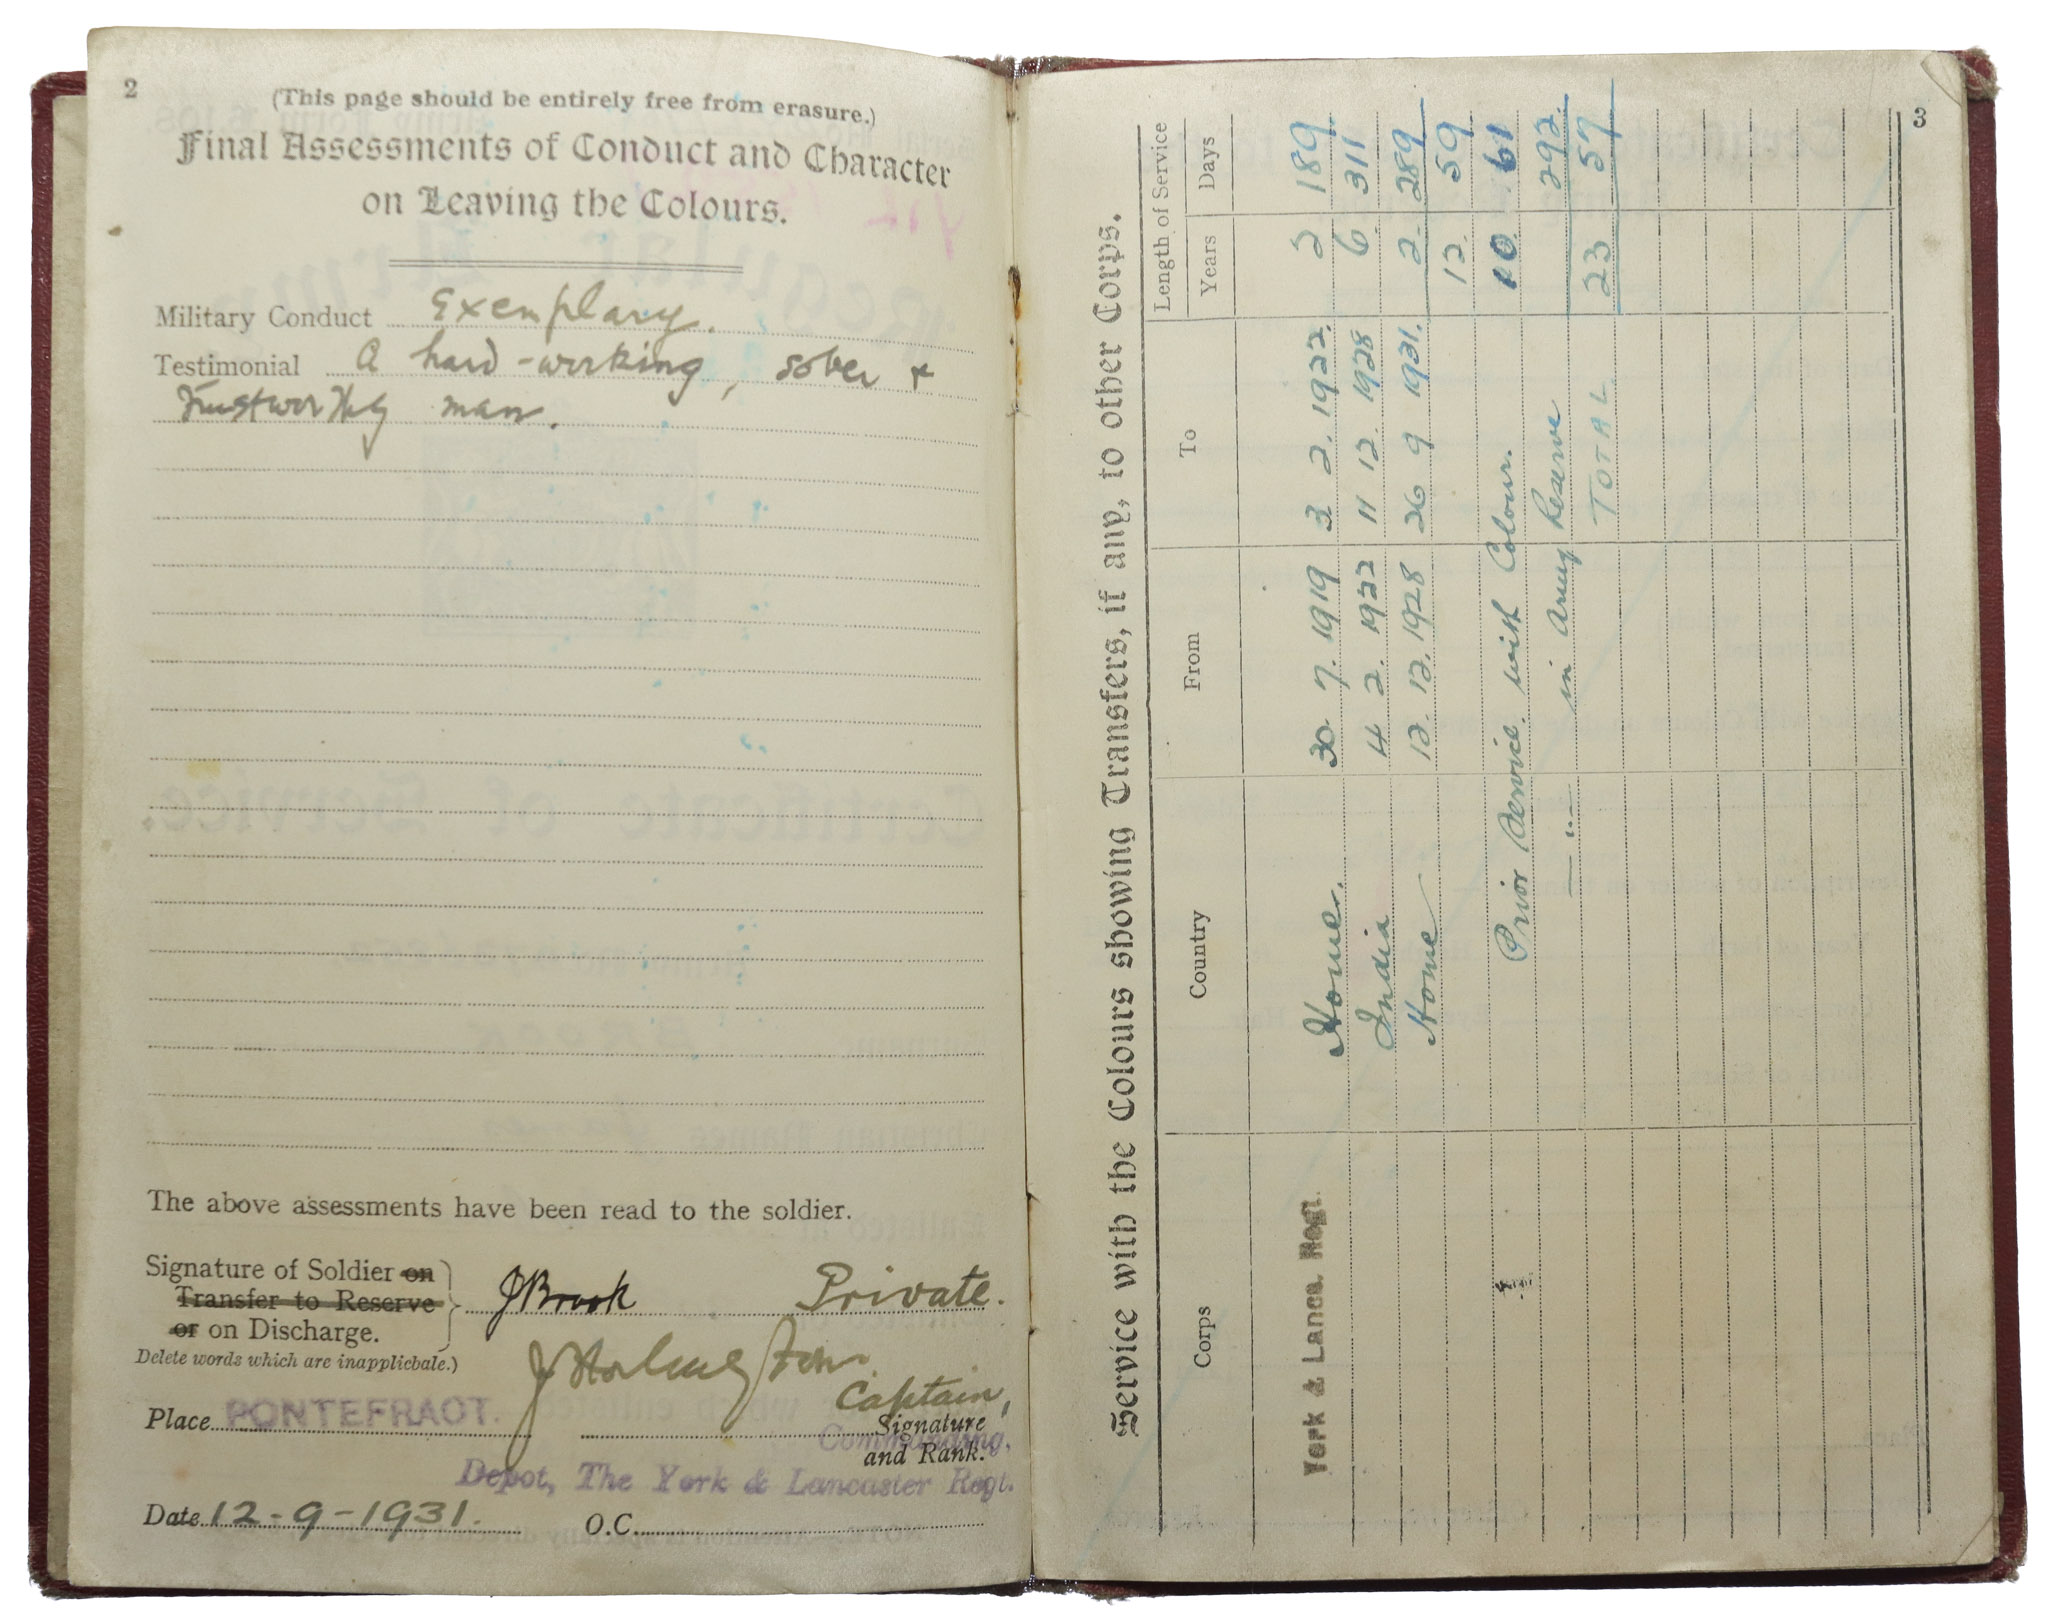 2
(This page should be entirely free from erasure.)
Final Assessments of Conduct and Character
on Leaving the Colours.
Military Conduct Exemplary.
Testimonial A hard-working, sober &
trustworthy man.
The above assessments have been read to the soldier.
Signature of Soldier on
Transfer to Reserve
or on Discharge.
J Brook Private.
Delete words which are inapplicbale.)
Captain,
Place PONTEFRACT.
Signature
and Rank.
Commanding,
Depot, The York & Lancaster Regt.
Date 12-9-1931.
O.C.
3
Service with the Colours showing Transfers, if any, to other Corps.
Corps Country From To Length of Service
Years Days
York & Lancs. Regt. Home. 30. 7. 1919 3. 2. 1922. 2 189
India 4. 2. 1922 11 12. 1928 6. 311
Home 12. 12. 1928 26 9 1931. 2. 289
12. 59
Prior Service with Colours. 10. 61
— " — in Army Reserve 292
TOTAL 23 57